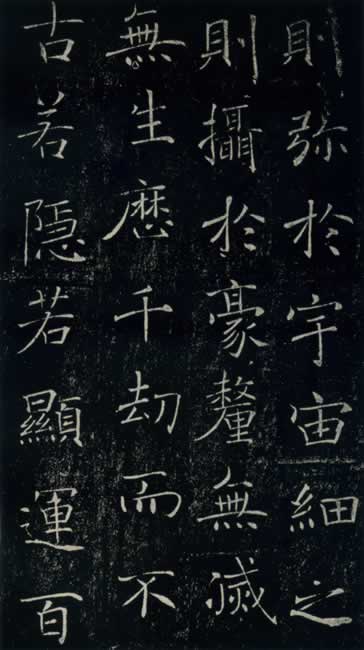 則弥於宇宙細之
則攝於豪釐無滅
無生歷千劫而不
古若隱若顯運百